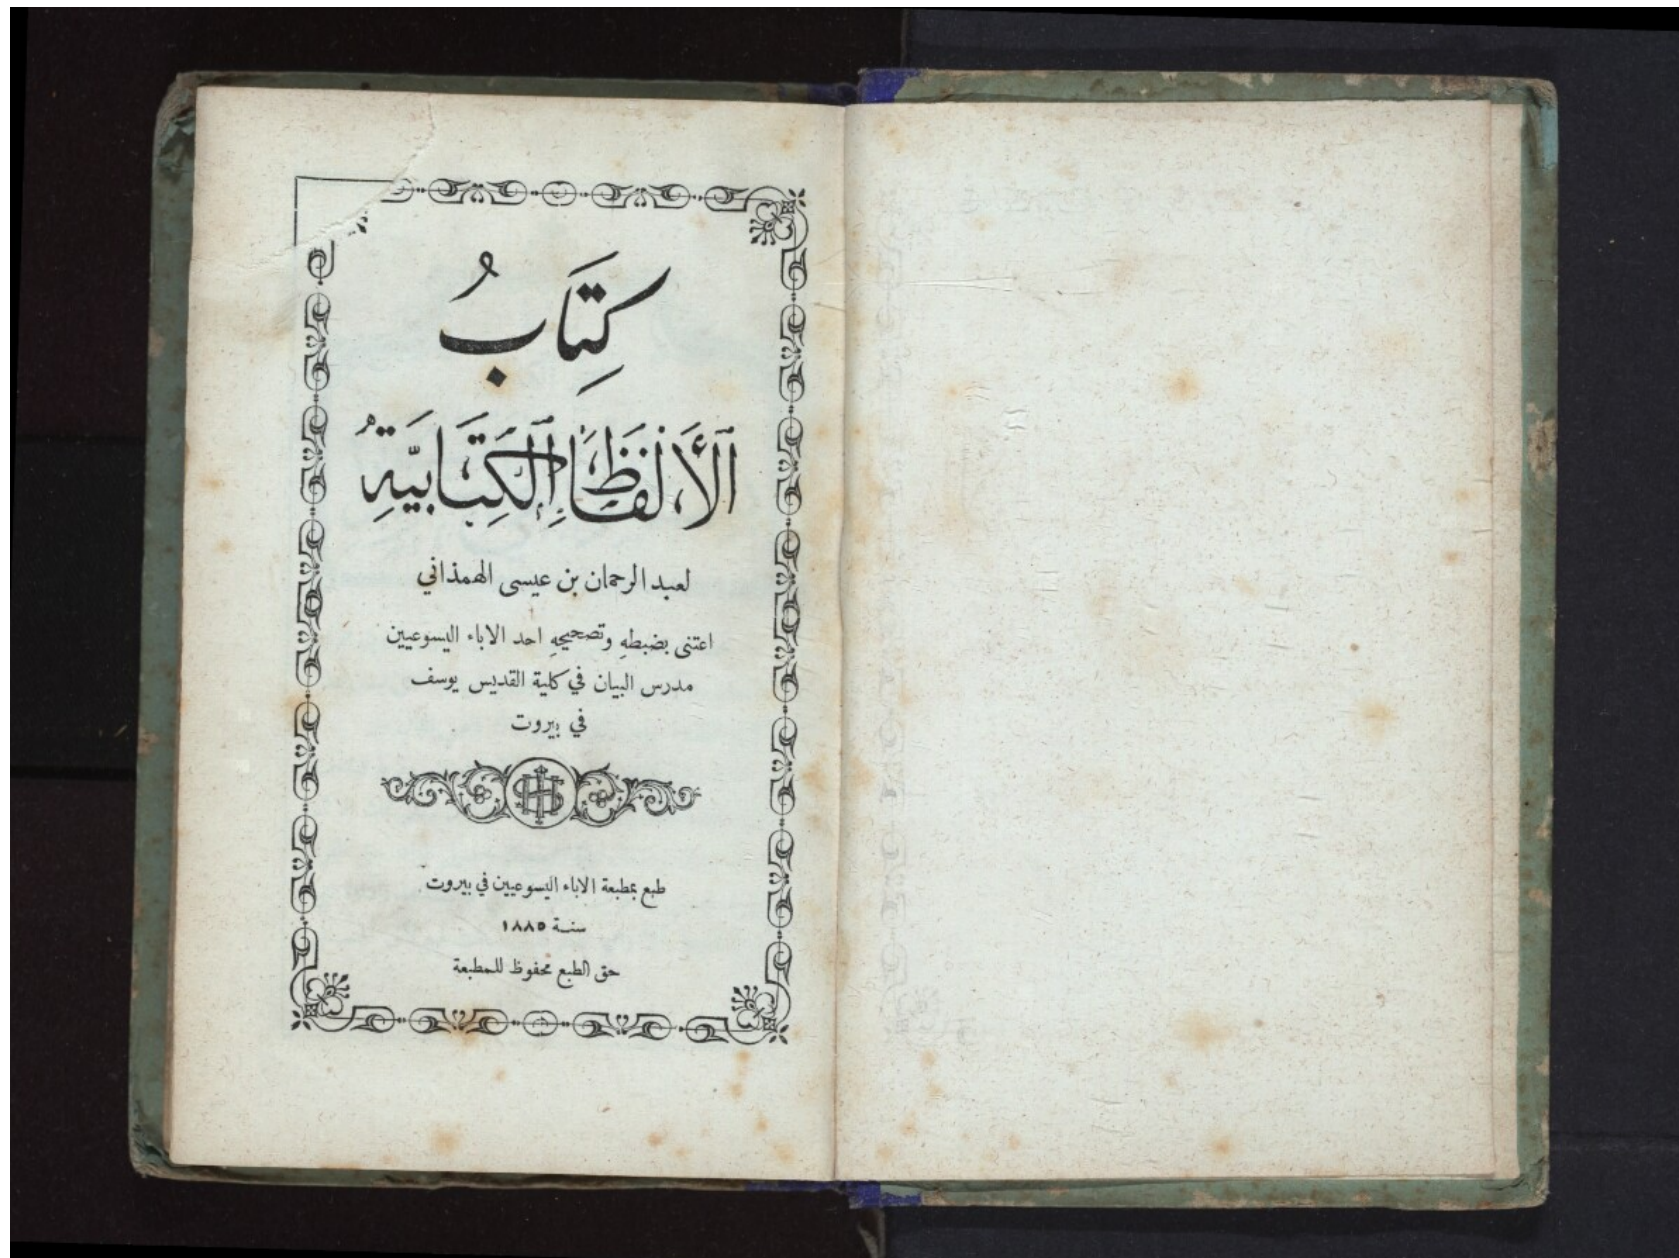 كِتَابُ
ٱلْأَلْفَاظِ ٱلْكِتَابِيَّةِ
لعبد الرحمان بن عيسى الهمذاني
اعتنى بضبطهِ وتصحيحهِ احد الاباء اليسوعيين
مدرس البيان في كلية القديس يوسف
في بيروت
IHS
طبع بمطبعة الاباء اليسوعيين في بيروت
سنة ١٨٨٥
حق الطبع محفوظ للمطبعة